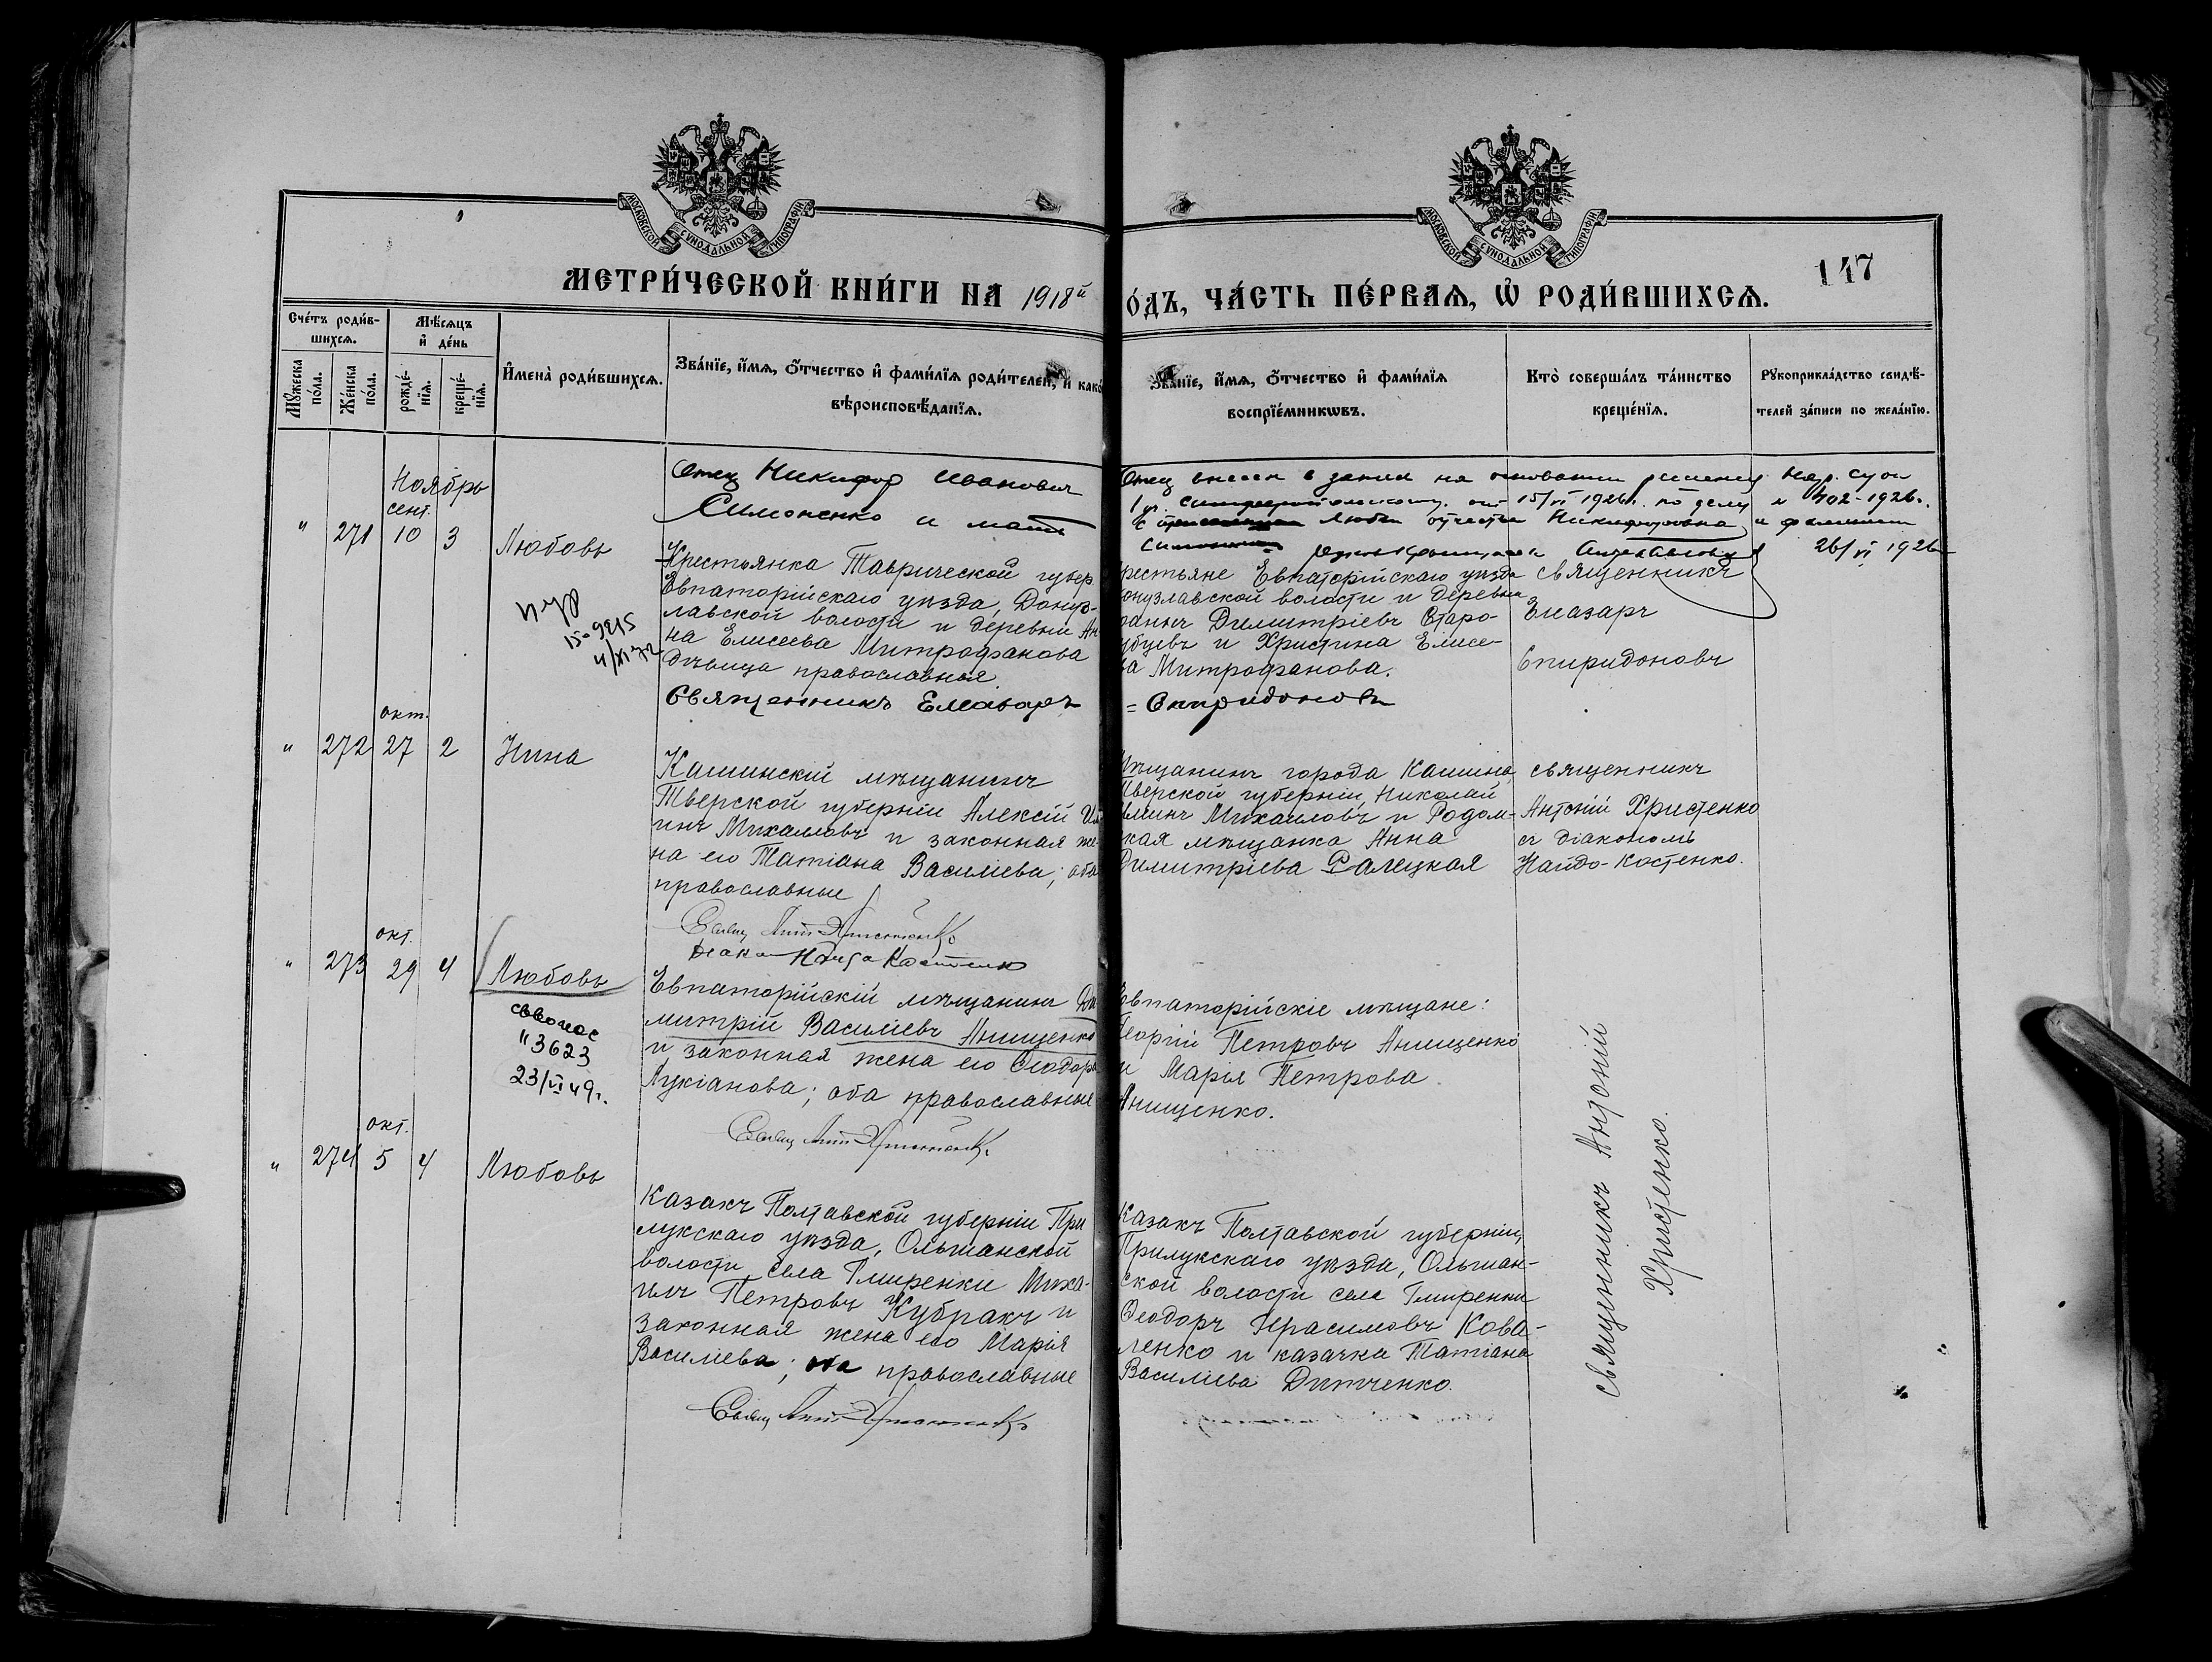 МОСКОВСКОЙ СѴНОДАЛЬНОЙ ТИПОГРАФІИ
МОСКОВСКОЙ СѴНОДАЛЬНОЙ ТИПОГРАФІИ
МЕТРИ́ЧЕСКОЙ КНИ́ГИ НА 1918й
О́ДЪ, ЧА́СТЬ ПЕ́РВАѦ, Ѡ РОДИ́ВШИХСѦ.
147
Сче́тъ роди́в-
шихсѧ.
Мꙋ́жеска
по́ла.
Же́нска
по́ла.
Мѣ́сѧцъ
и҆ де́нь
рожде́-
нїѧ.
креще́-
нїѧ.
И҆мена̀ роди́вшихсѧ.
Зва́нїе, и҆́мѧ, ѻ҆́тчество и҆ фами́лїѧ роди́телей, и҆ како
вѣроисповѣ́данїѧ.
Зва́нїе, и҆́мѧ, ѻ҆́тчество и҆ фами́лїѧ
воспрїе́мникѡвъ.
Кто̀ соверша́лъ та́инство
креще́нїѧ.
Рꙋкоприкла́дство свидѣ́-
телей за́писи по жела́нїю.
Ноябрь
сент.
" 271 10 3 Любовь
Отец Никифор Иванович
Симоненко и мать
Крестьянка Таврической губер.
Евпаторійскаго уѣзда, Донуз-
лавской волости и деревни Ан-
на Елисеева Митрофанова
дѣвица православная
Священникъ Елеазаръ
Отец внесен в запись на основании решения Нар. Суда
15/VI 1926г. по делу № 402-1926г.
Любви отчества Никифоровна и фамилии
26/VI 1926
рестьяне Евпаторійскаго уѣзда
онузлавской волости и деревни
Димитріевъ Старо-
убцевъ и Христина Елисе-
а Митрофанова.
= Спиридоновъ
священникъ
Елеазаръ
Спиридоновъ
окт.
" 272 27 2 Нина
Кашинскій мѣщанинъ
Тверской губерніи Алексій Иль
инъ Михаиловъ и законная же-
на его Татіана Василіева; оба
православные
Свящ Ант Христенко
Діакон Найда Костенко
мѣщанинъ города Кашина
Тверской губерніи, Николай
льинъ Михаиловъ и Радом-
кая мѣщанка Анна
Димитріева Ралецкая
священникъ
Антоній Христенко
съ діакономъ
Найдо-Костенко.
окт.
" 273 29 4 Любовь
3623
23/VI 49г.
Евпаторійскій мѣщанинъ Ди
митрій Василіевъ Анищенко
и законная жена его Ѳеодора
Лукіанова; оба православные
Свящ Ант Христенко
Евпаторійскіе мѣщане:
Георгій Петровъ Анищенко
и Марія Петрова
Анищенко.
окт.
" 274 5 4 Любовь
Казакъ Полтавской губерніи При
лукскаго уѣзда, Ольшанской
волости села Гмиренки Миха-
илъ Петровъ Кубракъ и
законная жена его Марія
Василіева; оба православные
Свящ Ант Христенко
Казакъ Полтавской губерніи,
Прилукскаго уѣзда, Ольшан-
ской волости села Гмиренки
Ѳеодоръ Герасимовъ Кова-
ленко и казачка Татіана
Василіева Дитченко.
священникъ Антоній
Христенко.